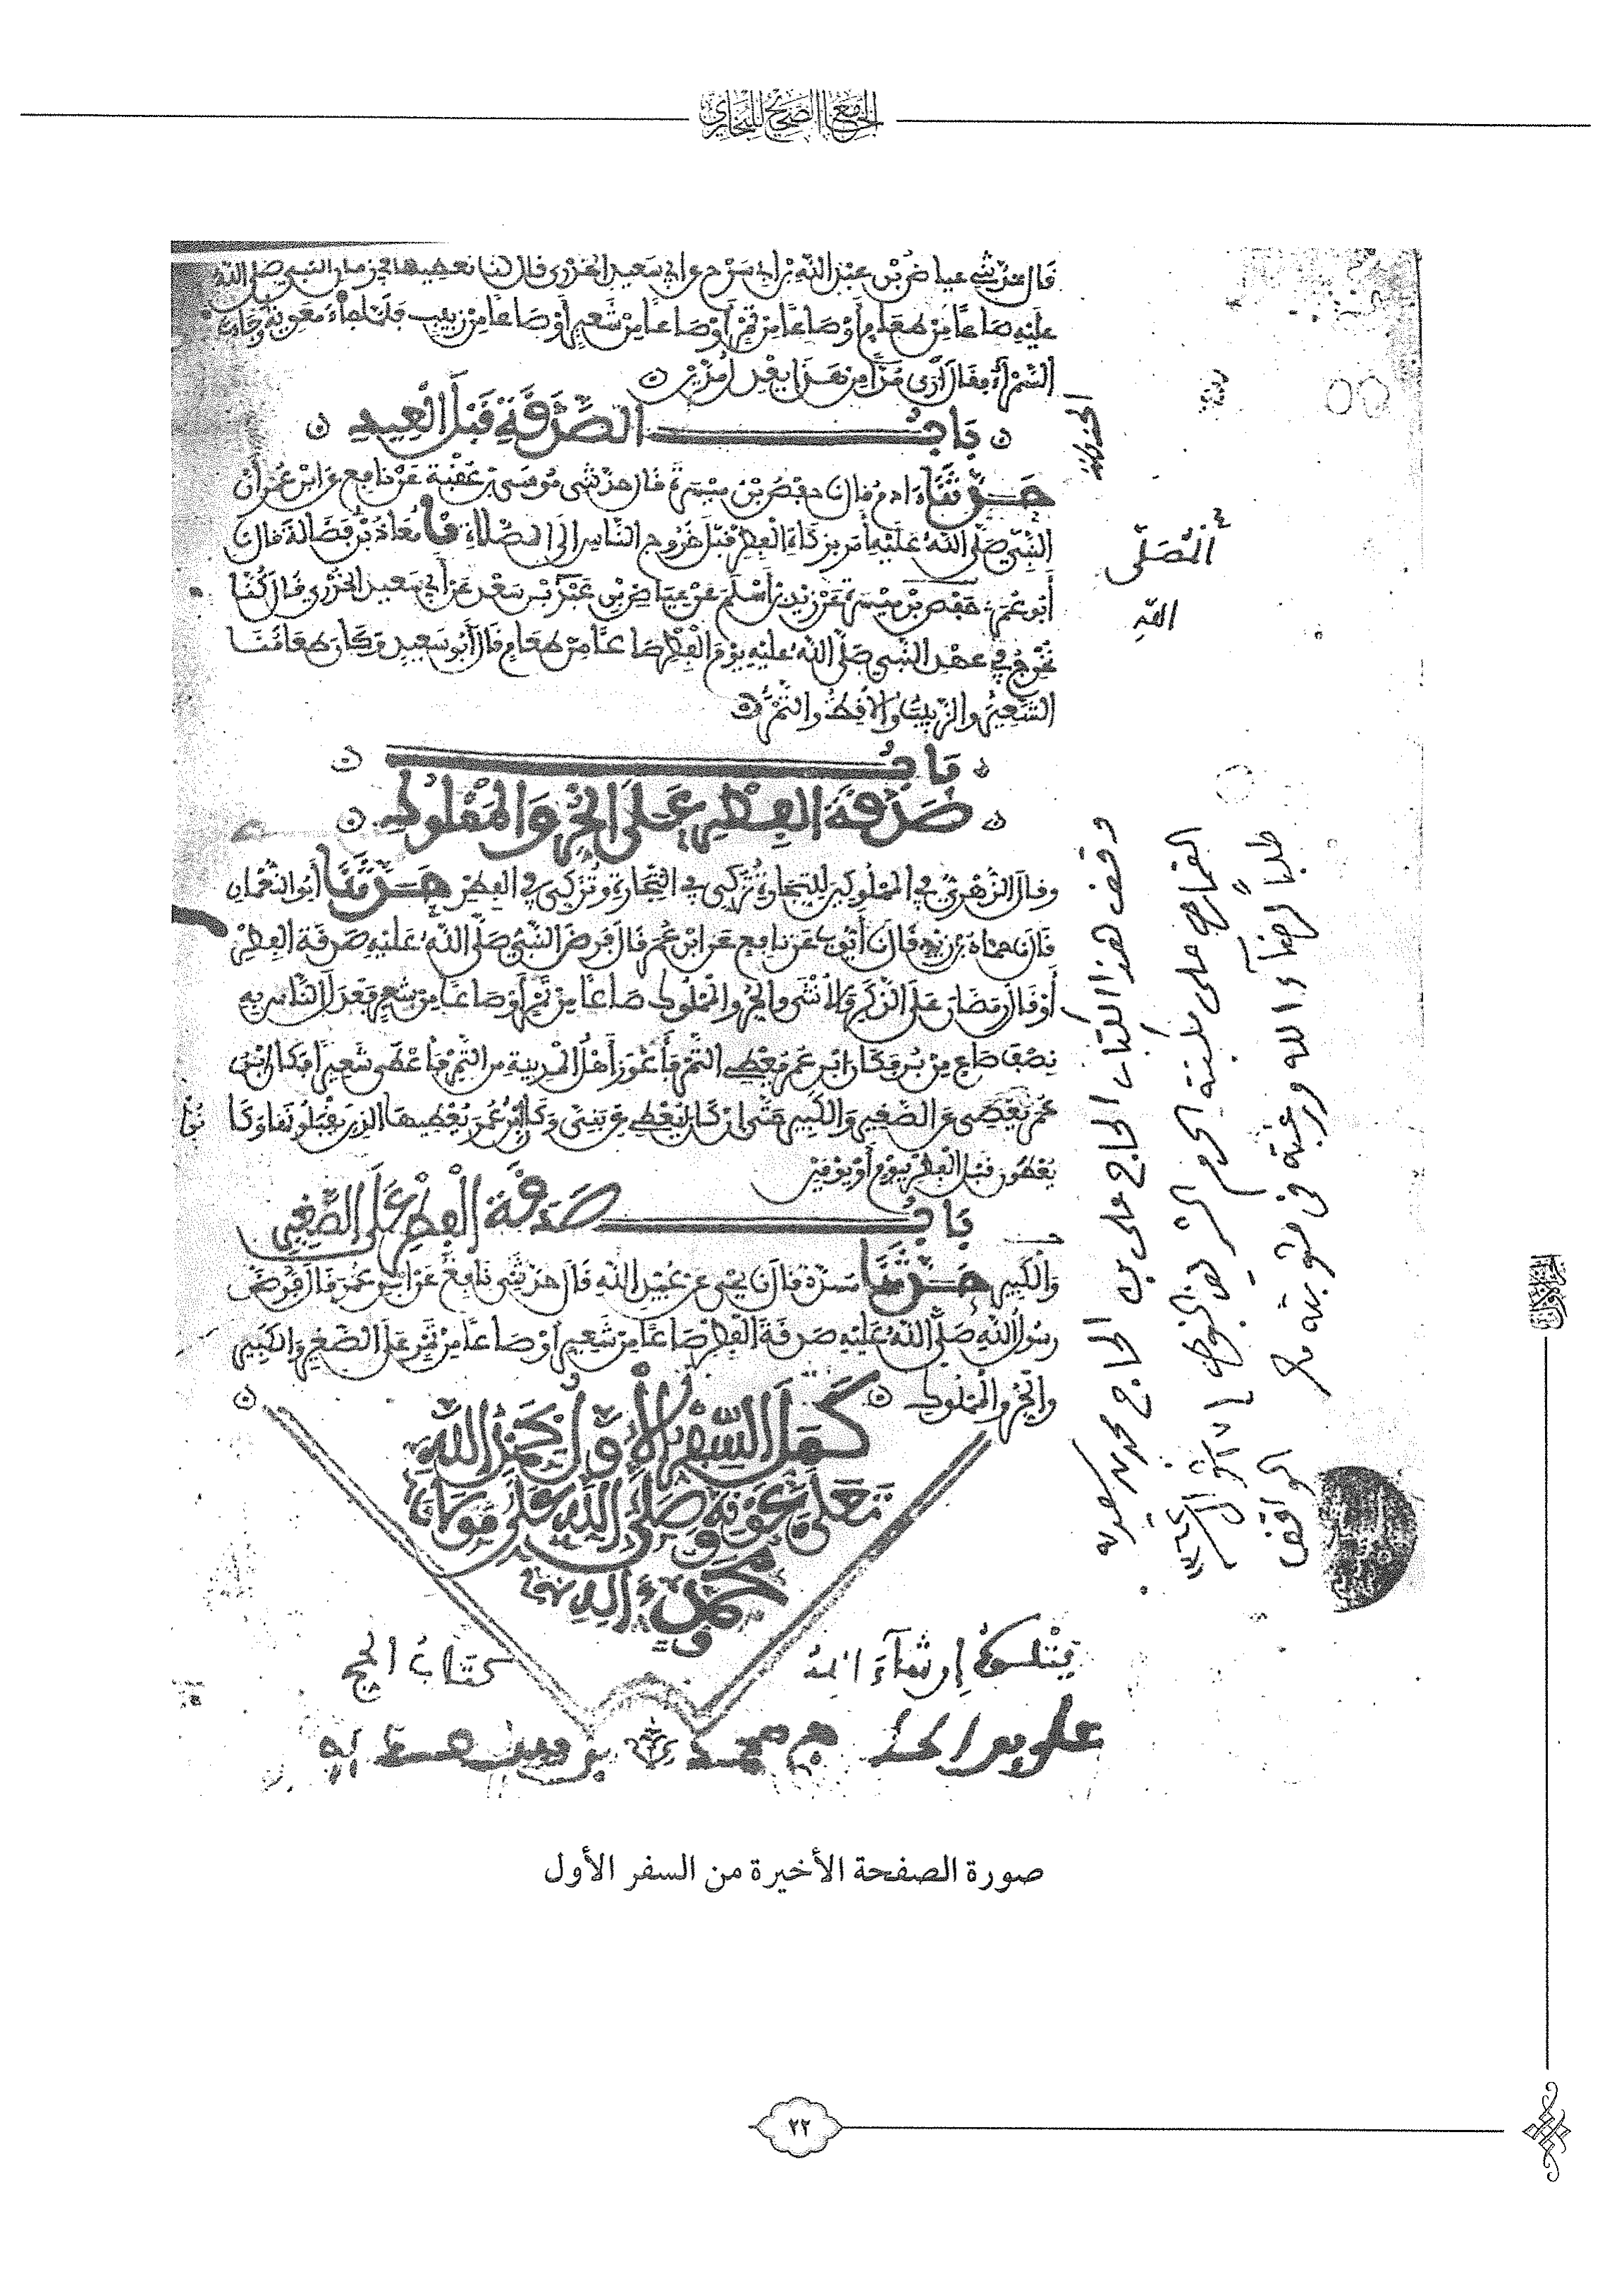 الجامع الصحيح للبخاري
قال حدثني عياض بن عبد الله بن أبي سرح عن أبي سعيد الخدري قال كنا نعطيها في زمان النبي صلى الله
عليه صاعا من طعام أو صاعا من تمر أو صاعا من شعير أو صاعا من زبيب فلما جاء معوية وجاءت
السمراء فقال أرى مدا من هذا يعدل مدين
باب الصدقة قبل العيد
حدثنا ءادم قال ن حفص بن ميسرة قال حدثني موسى بن عقبة عن نافع عن ابن عمر أن
النبي صلى الله عليه أمر بزكاة الفطر قبل خروج الناس إلى الصلاة نا معاذ بن فضالة قال ن
أبو عمر حفص بن ميسرة عن زيد بن أسلم عن عياض بن عبد بن سعد عن أبي سعيد الخدري قال كنا
نخرج في عهد النبي صلى الله عليه يوم الفطر صاعا من طعام قال أبو سعيد وكان طعامنا
الشعير والزبيب والأقط والتمر
المصلى
الله
باب
صدقة الفطر على الحر والمملوك
وقال الزهري في المملوكين للتجارة تزكى في التجارة وتزكى في الفطر حدثنا أبو النعمان
قال ن حماد بن زيد قال ن أيوب عن نافع عن ابن عمر قال فرض النبي صلى الله عليه صدقة الفطر
أو قال رمضان على الذكر والأنثى والحر والمملوك صاعا من تمر أو صاعا من شعير فعدل الناس به
نصف صاع من بر فكان ابن عمر يعطي التمر فأعوز أهل المدينة من التمر فأعطى شعيرا فكان ابن
عمر يعطى عن الصغير والكبير حتى إن كان يعطي عن بني وكان ابن عمر يعطيها الذين يقبلونها وكا
نوا
يعطون قبل الفطر بيوم أو يومين
باب صدقة الفطر على الصغير
والكبير حدثنا مسدد قال ن يحيى عن عبيد الله قال حدثني نافع عن ابن عمر قال فرض
رسول الله صلى الله عليه صدقة الفطر صاعا من شعير أو صاعا من تمر على الصغير والكبير
والحر والمملوك
كمل السفر الأول بحمد الله
تعلى وعونه وصلى الله على مولانا
محمد وءاله
يتلوه إن شاء الله
كتاب الحج
وقف هذا الكتاب الحاج على بن الحاج محمد
القماص على مكتبة الحرم الشريف النبوي
طلباً لرضآء الله ورغبة في مثوبته
الواقف
صورة الصفحة الأخيرة من السفر الأول
٢٢